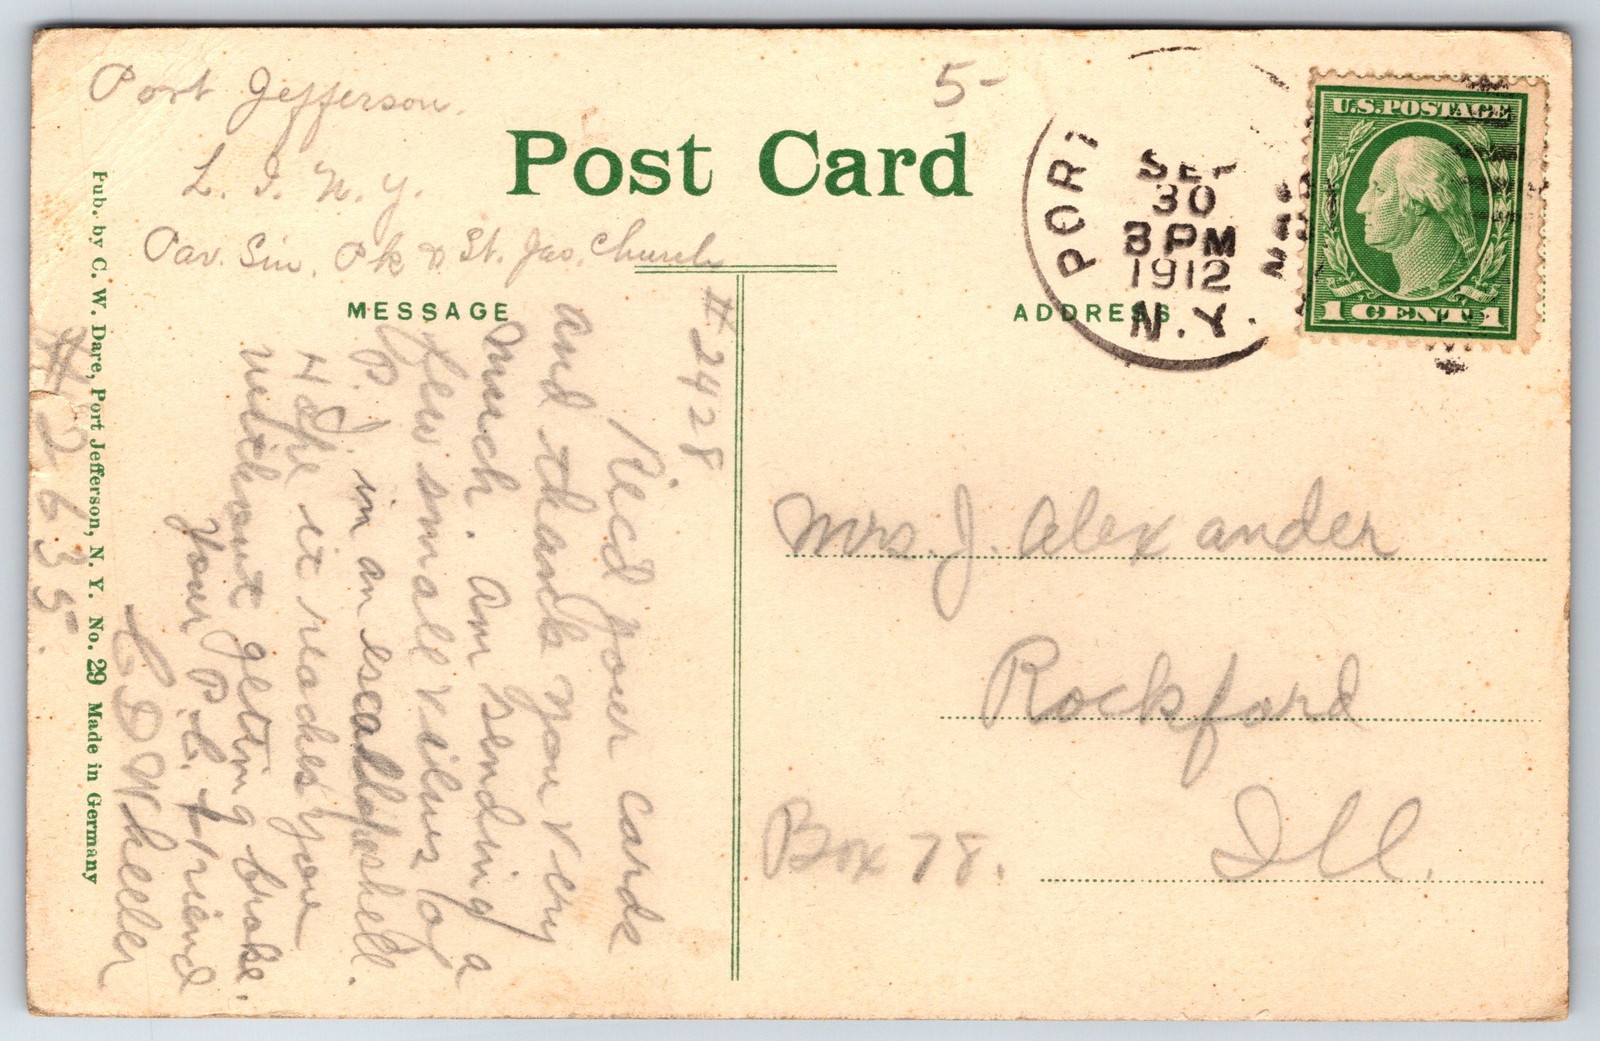 Port Jefferson.
L. I. N. Y.
Pav. Sin. Pk & St. Jas. Church
5-
Post Card
MESSAGE
ADDRESS
PORT
SEP
30
8 PM
1912
N.Y.
U.S. POSTAGE
1 CENT 1
# 2428
Rec'd your cards
and thank you very
much. Am sending a
few small views of
P. J. in an escallop shell.
Hope it reaches you
without getting broke.
Your P.C. friend
E D Wheeler
# 2635.
Pub. by C. W. Dare, Port Jefferson, N. Y. No. 29 Made in Germany
Mrs. J. Alexander
Rockford
Box 78. Ill.